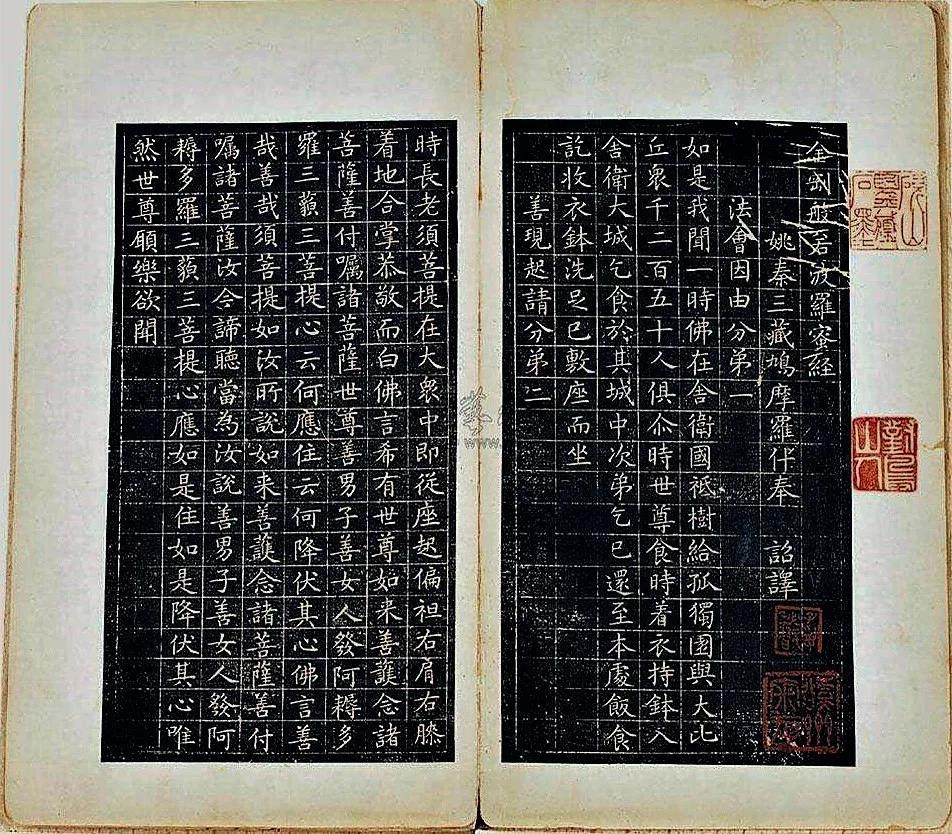 金剛般若波羅蜜經
姚秦三藏鳩摩羅什奉 詔譯
法會因由分第一
如是我聞一時佛在舍衛國祇樹給孤獨園與大比
丘眾千二百五十人俱尒時世尊食時着衣持鉢入
舍衛大城乞食於其城中次苐乞已還至本處飯食
訖收衣鉢洗足已敷座而坐
善現起請分第二
時長老須菩提在大眾中即從座起偏袒右肩右膝
着地合掌恭敬而白佛言希有世尊如来善護念諸
菩薩善付囑諸菩薩世尊善男子善女人發阿耨多
羅三藐三菩提心云何應住云何降伏其心佛言善
哉善哉須菩提如汝所說如来善護念諸菩薩善付
囑諸菩薩汝今諦聽當為汝說善男子善女人發阿
耨多羅三藐三菩提心應如是住如是降伏其心唯
然世尊願樂欲聞
www.